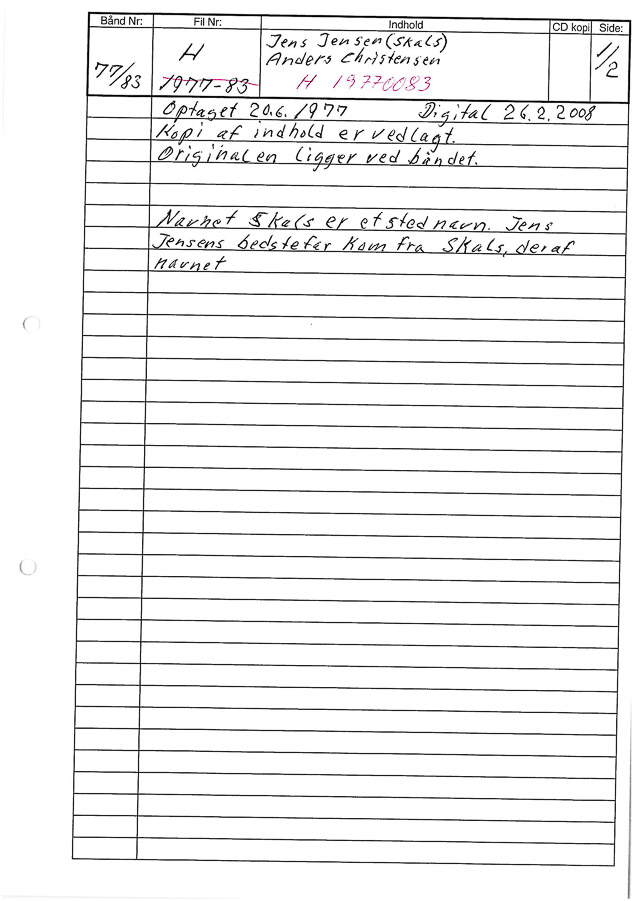 Bånd Nr: Fil Nr: Indhold CD kopi Side:
77/83 H Jens Jensen (Skals) 1/2
1977-83 Anders Christensen
H 19770083
Optaget 20.6.1977 Digital 26.2.2008
Kopi af indhold er vedlagt.
Originalen ligger ved båndet.
Navnet Skals er et stednavn. Jens
Jensens bedstefar kom fra Skals, deraf
navnet